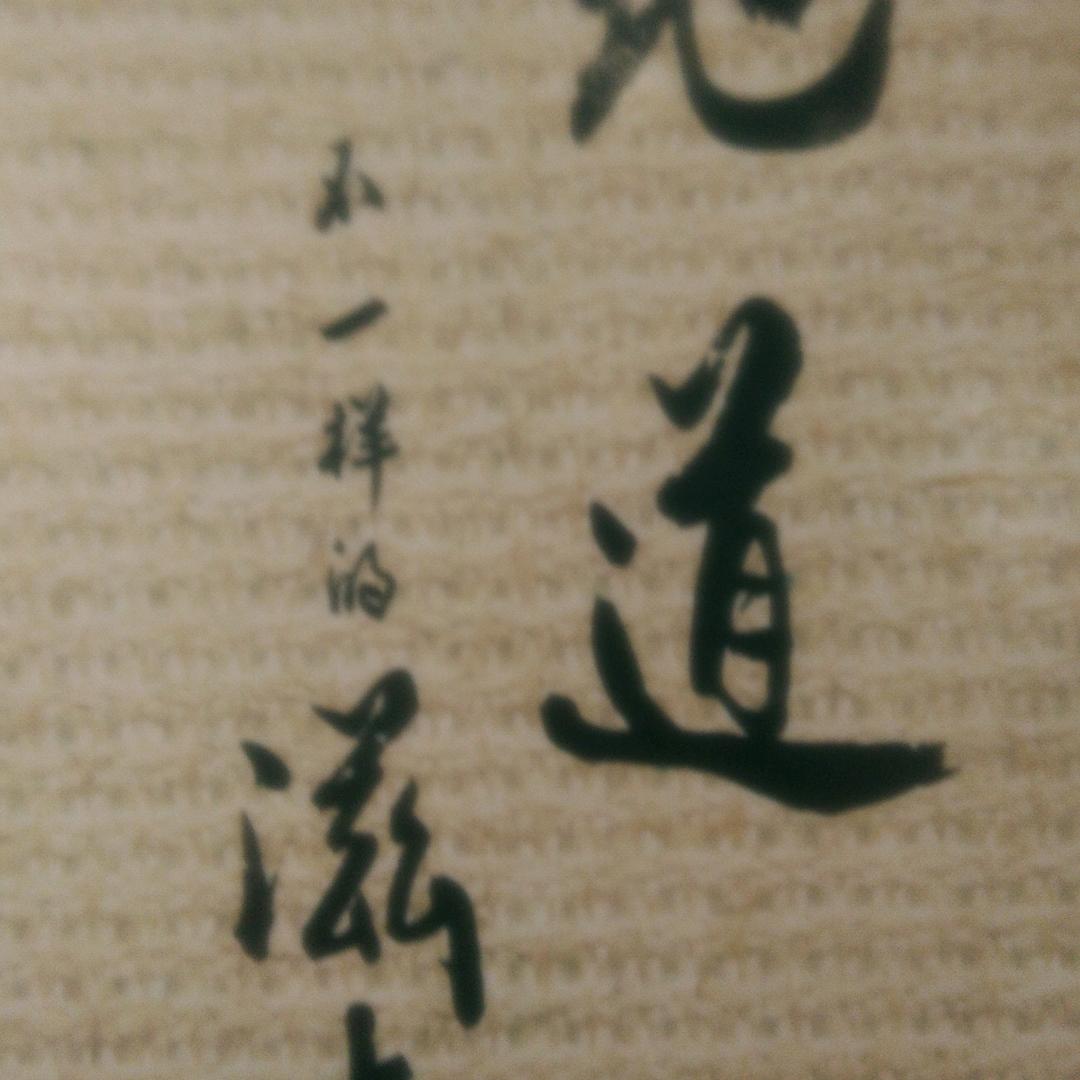 道
不一样的滋